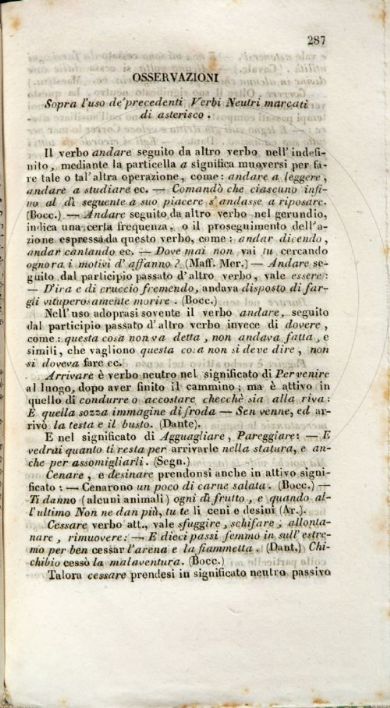 287
OSSERVAZIONI
Sopra l'uso de' precedenti Verbi Neutri marcati
di asterisco.
Il verbo andare seguito da altro verbo nell'indefi-
nito, mediante la particella a significa muoversi per fa-
re tale o tal'altra operazione, come: andare a leggere,
andare a studiare ec. — Comandò che ciascuno infi-
no al dì seguente a suo piacere s'andasse a riposare.
(Bocc.) — Andare seguito da altro verbo nel gerundio,
indica una certa frequenza, o il proseguimento dell'a-
zione espressa da questo verbo, come: andar dicendo,
andar cantando ec. — Dove mai non vai tu cercando
ognora i motivi d'affanno? (Maff. Mer.) — Andare se-
guito dal participio passato d'altro verbo, vale essere:
— D'ira e di cruccio fremendo, andava disposto di far-
gli vituperosamente morire. (Bocc.)
Nell'uso adoprasi sovente il verbo andare, seguito
dal participio passato d'altro verbo invece di dovere,
come: questa cosa non va detta, non andava fatta, e
simili, che vagliono questa cosa non si deve dire, non
si doveva fare ec.
Arrivare è verbo neutro nel significato di Pervenire
al luogo, dopo aver finito il cammino; ma è attivo in
quello di condurre o accostare checchè sia alla riva:
E quella sozza immagine di froda — Sen venne, ed ar-
rivò la testa e il busto. (Dante).
E nel significato di Agguagliare, Pareggiare: — E
vedrai quanto ti resta per arrivarle nella statura, e an-
che per assomigliarli. (Segn.)
Cenare, e desinare prendonsi anche in attivo signi-
ficato: — Cenarono un poco di carne salata. (Bocc.) —
Ti danno (alcuni animali) ogni dì frutto, e quando al-
l'ultimo Non ne dan più, tu te li ceni e desini (Ar.).
Cessare verbo att., vale sfuggire, schifare, allonta-
nare, rimuovere: — E dieci passi femmo in sull'estre-
mo per ben cessar l'arena e la fiammella. (Dant.) Chi-
chibio cessò la malaventura. (Bocc.)
Talora cessare prendesi in significato neutro passivo